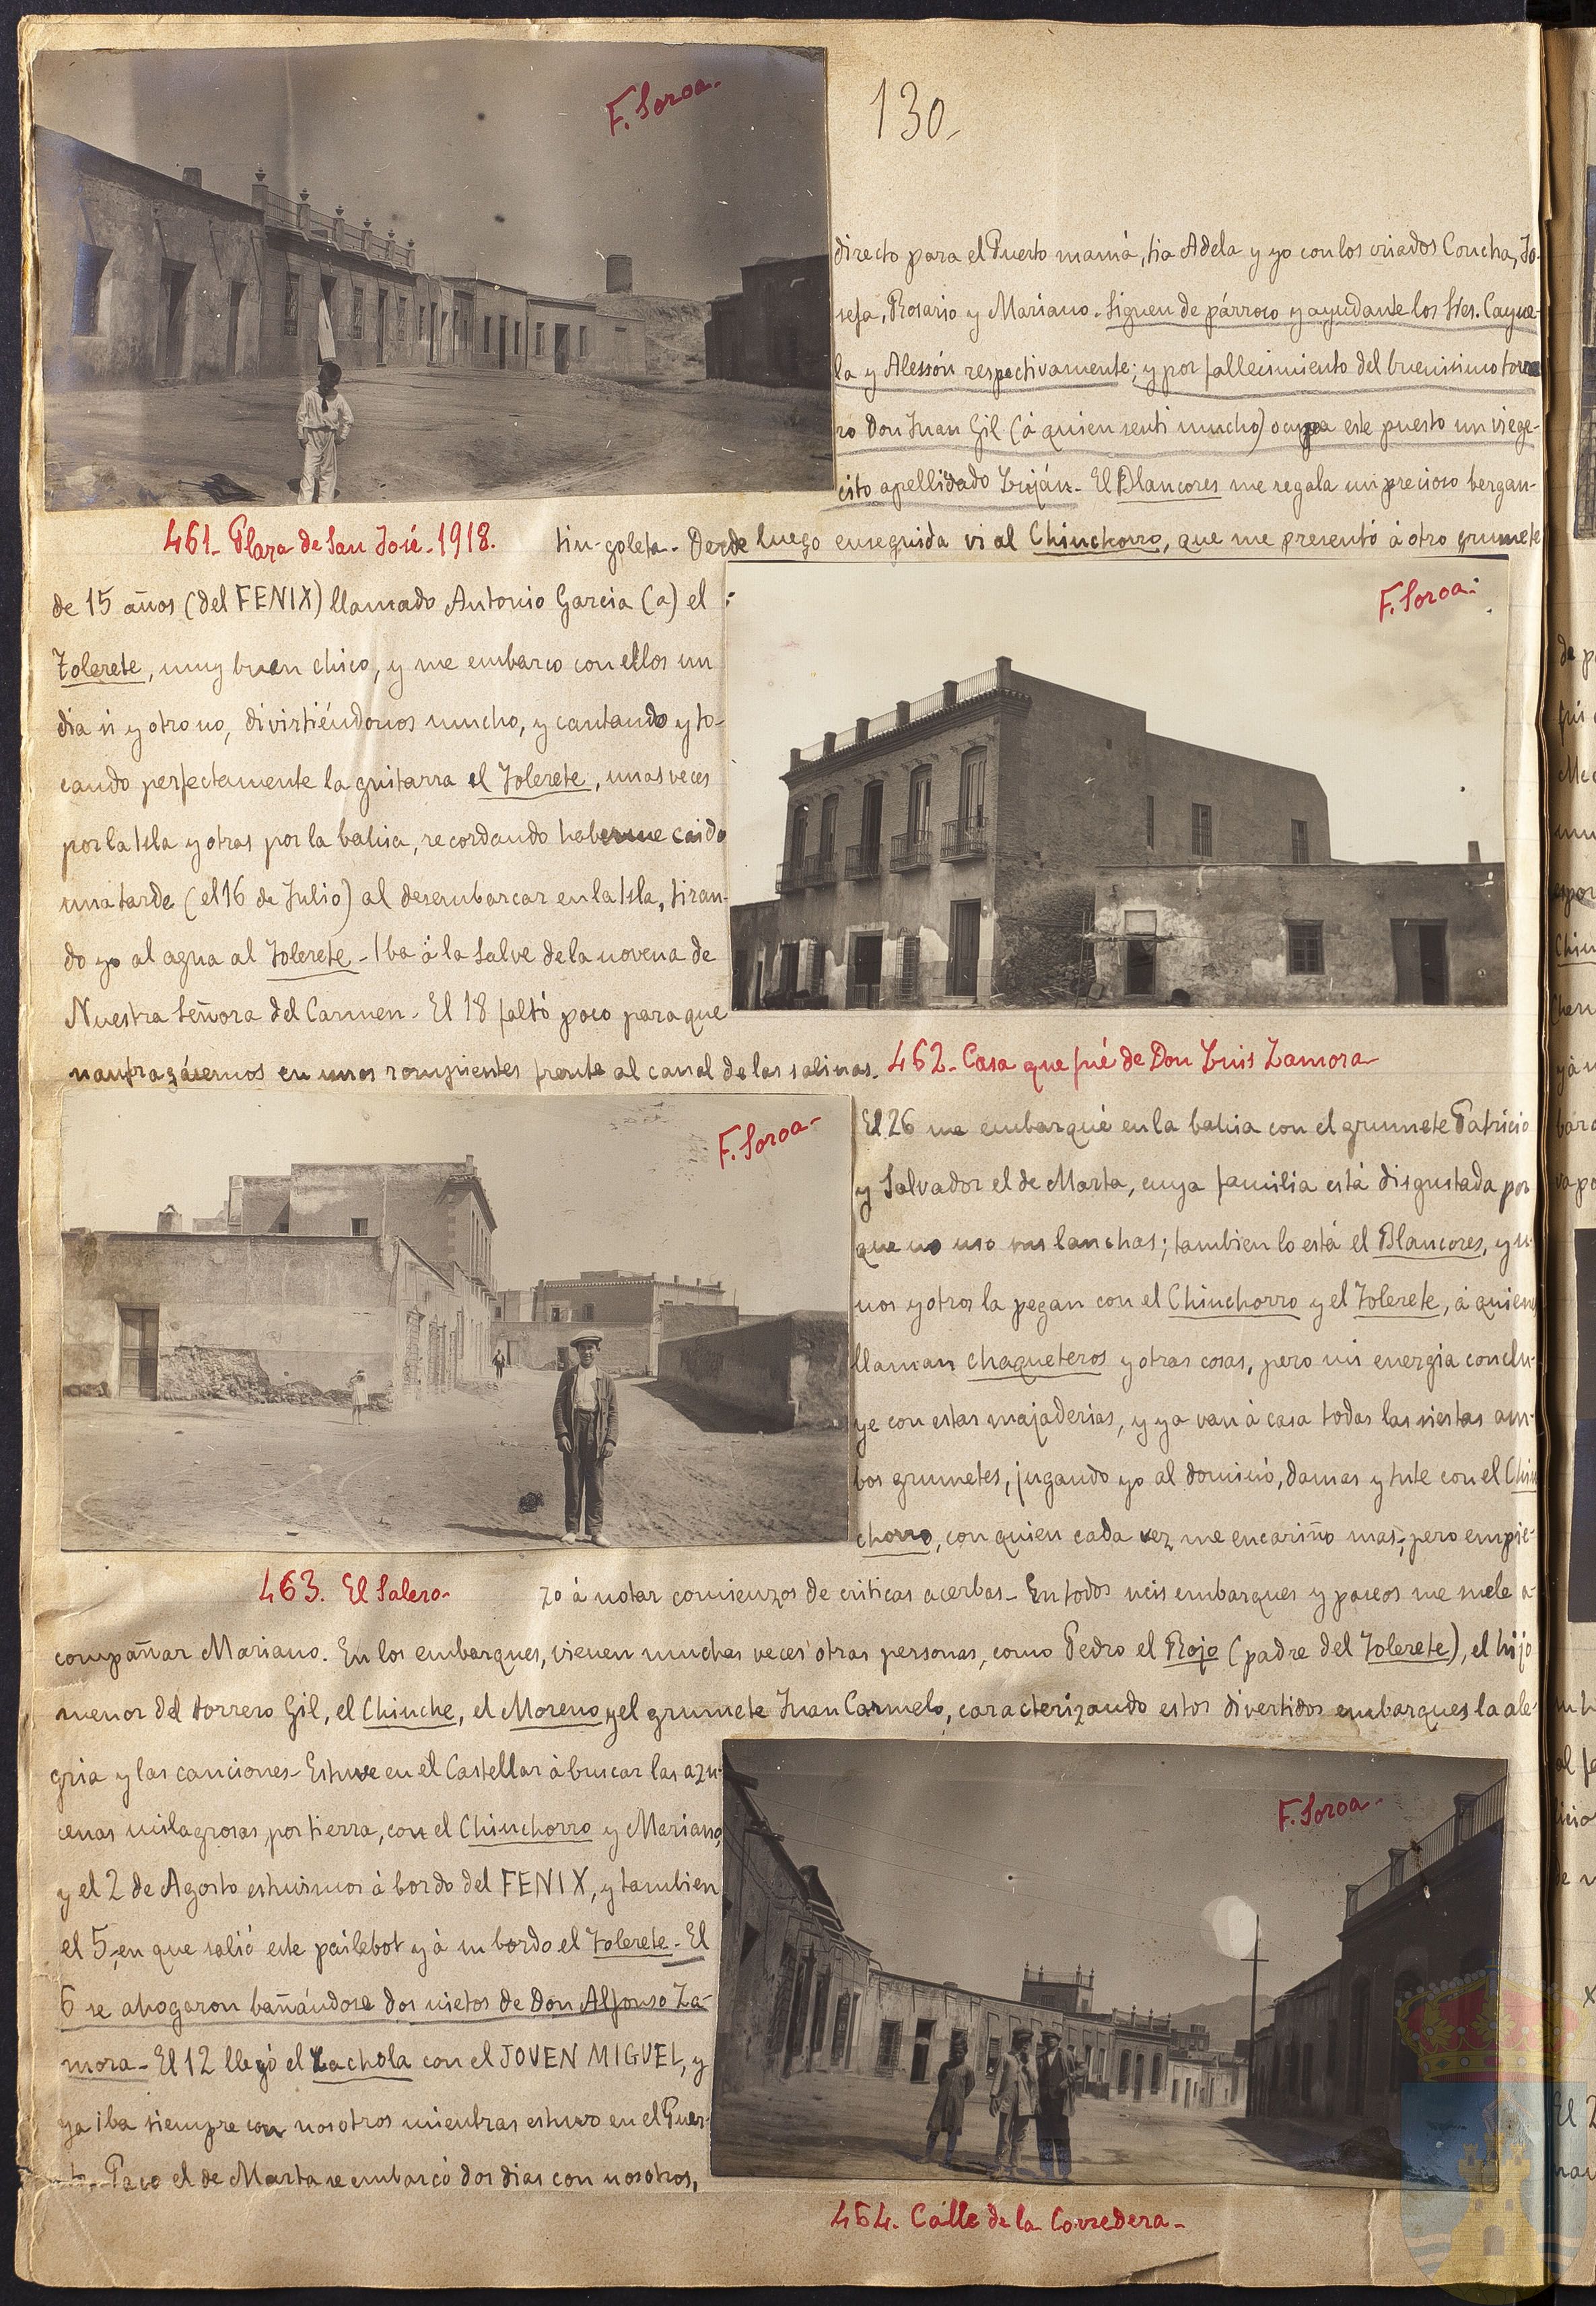 F. Soroa-
130-
directo para el Puerto mamá, tia Adela y yo con los criados Concha, Jo-
sefa, Rosario y Mariano. Siguen de párroco y ayudante los Sres. Cayue-
la y Alessón respectivamente; y por fallecimiento del buenisimo torre
ro Don Juan Gil (á quien senti mucho) ocupa este puesto un viege-
cito apellidado Luján- El Blancores me regala un precioso bergan-
461- Plaza de San José-1918.
tin-goleta- Desde luego enseguida vi al Chinchorro, que me presentó á otro grumete
de 15 años (del FENIX) llamado Antonio Garcia (a) el
Tolerete, muy buen chico, y me embarco con ellos un
dia si y otro no, divirtiéndonos mucho, y cantando y to-
cando perfectamente la guitarra el Tolerete, unas veces
por la Isla y otras por la bahia, recordando haberme caido
una tarde (el 16 de Julio) al desembarcar en la Isla, tiran-
do yo al agua al Tolerete- Iba á la Salve de la novena de
Nuestra Señora del Carmen- El 18 faltó poco para que
naufragásemos en unos rompientes frente al canal de las salinas.
F. Soroa-
462- Casa que fué de Don Luis Zamora-
F. Soroa-
El 26 me embarqué en la bahia con el grumete Patricio
y Salvador el de Marta, cuya familia está disgustada por
que no uso sus lanchas; tambien lo está el Blancores, y u-
nos y otros la pegan con el Chinchorro y el Tolerete, á quien
llaman chaqueteros y otras cosas, pero mi energia conclu-
ye con estas majaderias, y ya van á casa todas las siestas am-
bos grumetes, jugando yo al dominó, damas y tute con el Chin
chorro, con quien cada vez me encariño mas; pero empie-
463. El Salero-
zo á notar comienzos de criticas acerbas- En todos mis embarques y paseos me suele a-
compañar Mariano. En los embarques, vienen muchas veces otras personas, como Pedro el Rojo (padre del Tolerete), el hijo
menor del torrero Gil, el Chinche, el Moreno y el grumete Juan Carmelo, caracterizando estos divertidos embarques la ale-
gria y las canciones- Estuve en el Castellar á buscar las azu-
cenas milagrosas por tierra, con el Chinchorro y Mariano,
y el 2 de Agosto estuvimos á bordo del FENIX, y tambien
el 5, en que salió este pailebot y á su bordo el Tolerete- El
6 se ahogaron bañándose dos nietos de Don Alfonso Za-
mora- El 12 llegó el Lachola con el JOVEN MIGUEL, y
ya iba siempre con nosotros mientras estuvo en el Puer-
to- Paco el de Marta se embarcó dos dias con nosotros,
F. Soroa-
464. Calle de la Corredera-